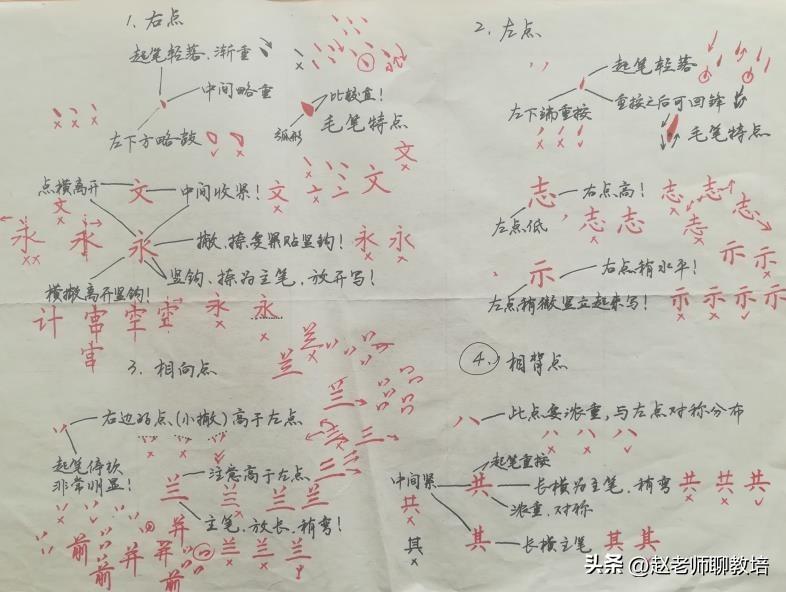 1. 右点
起笔轻落.渐重
中间略重
左下方略鼓
比较直!
弧形
毛笔特点
点横离开
文
中间收紧!
文
文
文
文
永
永
永
撇、捺要紧贴竖钩!
永
永
竖钩、捺为主笔,放开写!
横撇离开竖钩!
永
永
计
宫
空
宫
2. 左点
起笔轻落
左下端重按
重按之后可回锋
毛笔特点
志
右点高!
左点低
志
志
志
志
志
志
示
右点稍水平!
示
示
左点稍撇竖立起来写!
示
示
示
示
3. 相向点
兰
兰
兰
兰
兰
兰
右边的点(小撇)高于左点
起笔停顿
非常明显!
兰
注意高于左点
兰
兰
兰
主笔,放长,稍弯!
前
前
并
并
并
前
兰
兰
兰
4. 相背点
八
此点要浓重,与左点对称分布
八
八
八
起笔重按
中间紧
共
长横为主笔.稍弯
共
共
共
浓重.对称
共
其
其
长横主笔
其
其
头条 @赵老师聊教培